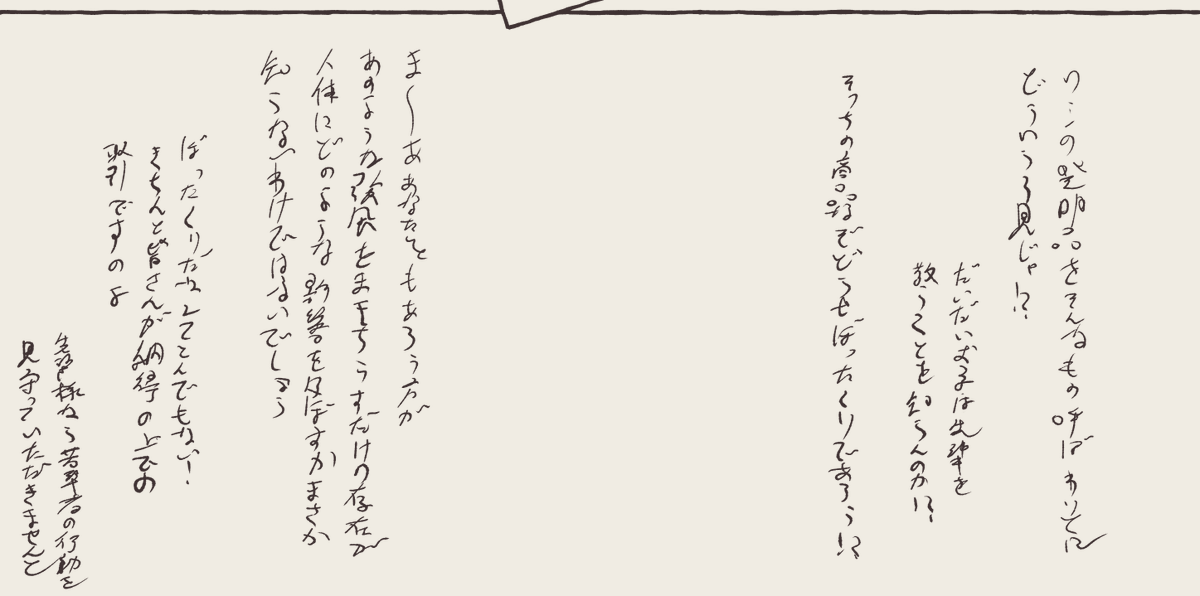 ワシの発明品をそんなもの呼ばわりとは
どういう了見じゃ!?
だいたいお主は先輩を
敬うことを知らんのか!?
そっちの商品こそどうせぼったくりであろう!?
ま〜ああなたともあろう方が
あのような強風をまきちらすだけの存在が
人体にどのような影響を及ぼすかまさか
知らないわけではないでしょう
ぼったくりだなんてとんでもない!
きちんと皆さんが納得の上での
取引ですのよ
先輩なら若輩者の行動を
見守っていただきませんと